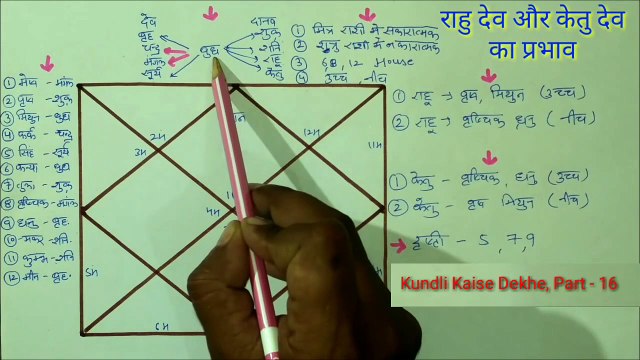 राहु देव और केतु देव
का प्रभाव
देव
बृह
चन्द्र
मंगल
सूर्य
बुध
दानव
शुक्र
शनि
राहू
केतु
① मित्र राशी में सकारात्मक
② शत्रु राशी में नकारात्मक
③ 6, 8, 12 House
④ उच्च नीच
① मेष - मंगल
② वृष - शुक्र
③ मिथुन - बुध
④ कर्क - चन्द्र
⑤ सिंह - सूर्य
⑥ कन्या - बुध
⑦ तुला - शुक्र
⑧ वृष्चिक - मंगल
⑨ धनु - बृह.
⑩ मकर - शनि
⑪ कुम्भ - शनि
⑫ मीन - बृह.
2H
12H
3H
11H
4H
5H
6H
① राहू → वृष, मिथुन (उच्च)
② राहू → वृष्चिक धनु (नीच)
① केतु - वृष्चिक, धनु (उच्च)
② केतु - वृष मिथुन (नीच)
दृष्टी - 5, 7, 9
Kundli Kaise Dekhe, Part - 16